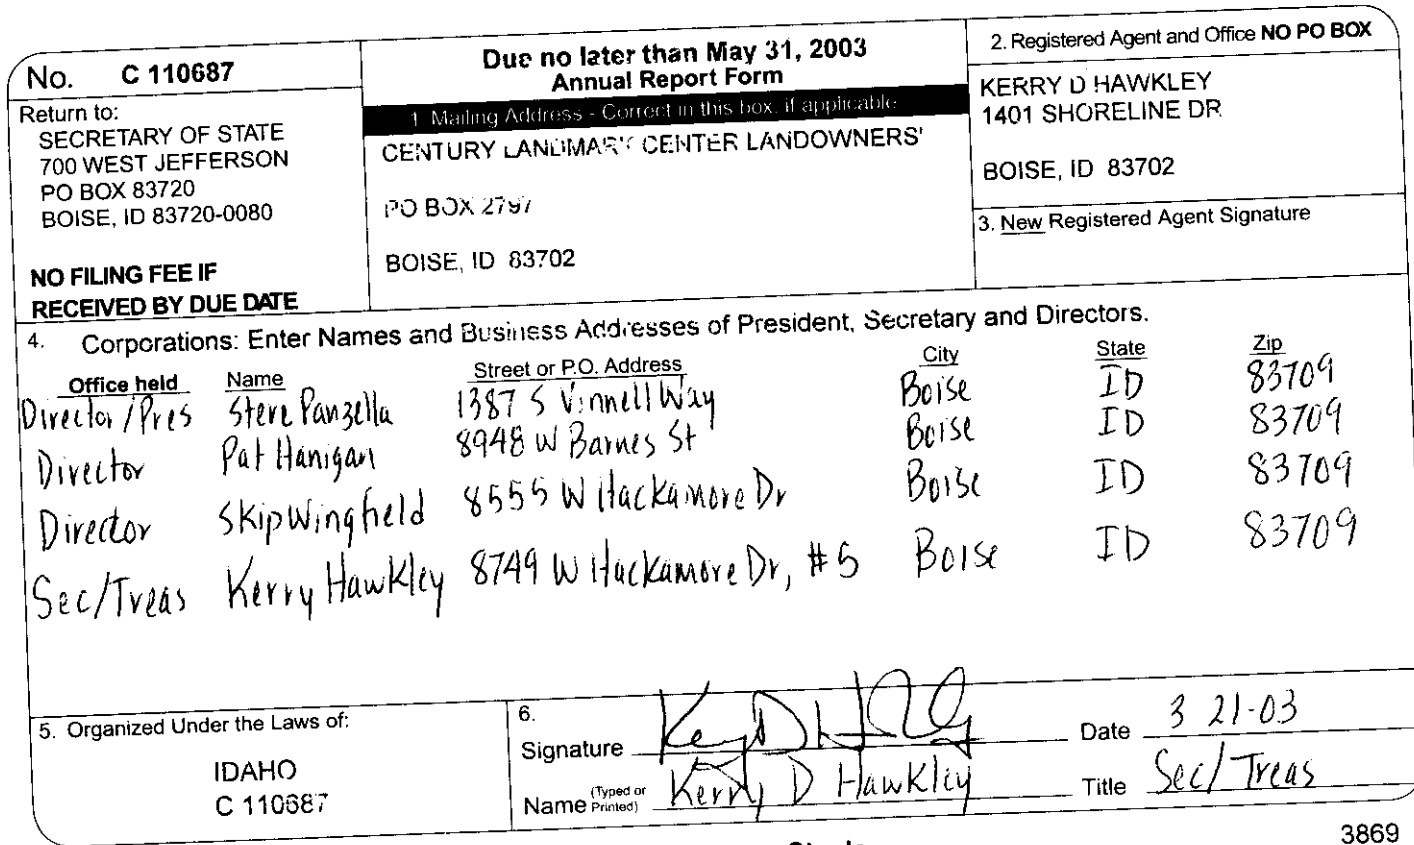 No. C 110687
Return to:
SECRETARY OF STATE
700 WEST JEFFERSON
PO BOX 83720
BOISE, ID 83720-0080
NO FILING FEE IF
RECEIVED BY DUE DATE
Due no later than May 31, 2003
Annual Report Form
1. Mailing Address - Correct in this box, if applicable
CENTURY LANDMARK CENTER LANDOWNERS'
PO BOX 2797
BOISE, ID 83702
2. Registered Agent and Office NO PO BOX
KERRY D HAWKLEY
1401 SHORELINE DR
BOISE, ID 83702
3. New Registered Agent Signature
4. Corporations: Enter Names and Business Addresses of President, Secretary and Directors.
Office held Name Street or P.O. Address City State Zip
Director/Pres Steve Panzella 1387 S Vinnell Way Boise ID 83709
Director Pat Hanigan 8948 W Barnes St Boise ID 83709
Director Skip Wingfield 8555 W Hackamore Dr Boise ID 83709
Sec/Treas Kerry Hawkley 8749 W Hackamore Dr, #5 Boise ID 83709
5. Organized Under the Laws of:
IDAHO
C 110687
6.
Signature Date 3 21-03
Name (Typed or Printed) Kerry D Hawkley Title Sec/Treas
3869